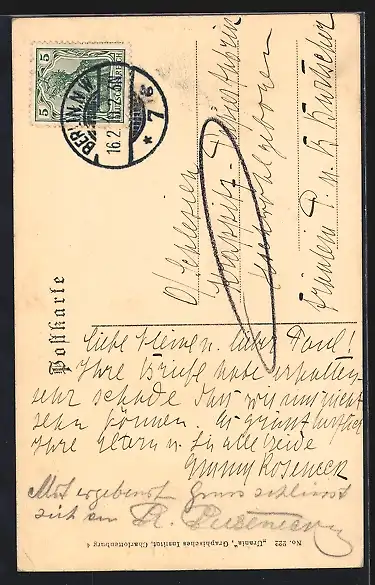 5 5
DEUTSCHES REICH
BERLIN N.W.
16.2.
* 7 g
Postkarte
Fräulein P. u. K. Kutscher
O/Schlesien
Liebe kleine u. lieber Paul!
Ihre Briefe habe erhalten
sehr schade das wir uns nicht
sehn können. Es grüsst herzlich
Ihre Eltern u. Sie alle beide
Emmy
Mit ergebenst Gruss schliesst
sich an R.
No. 222 „Urania", Graphisches Institut, Charlottenburg 4